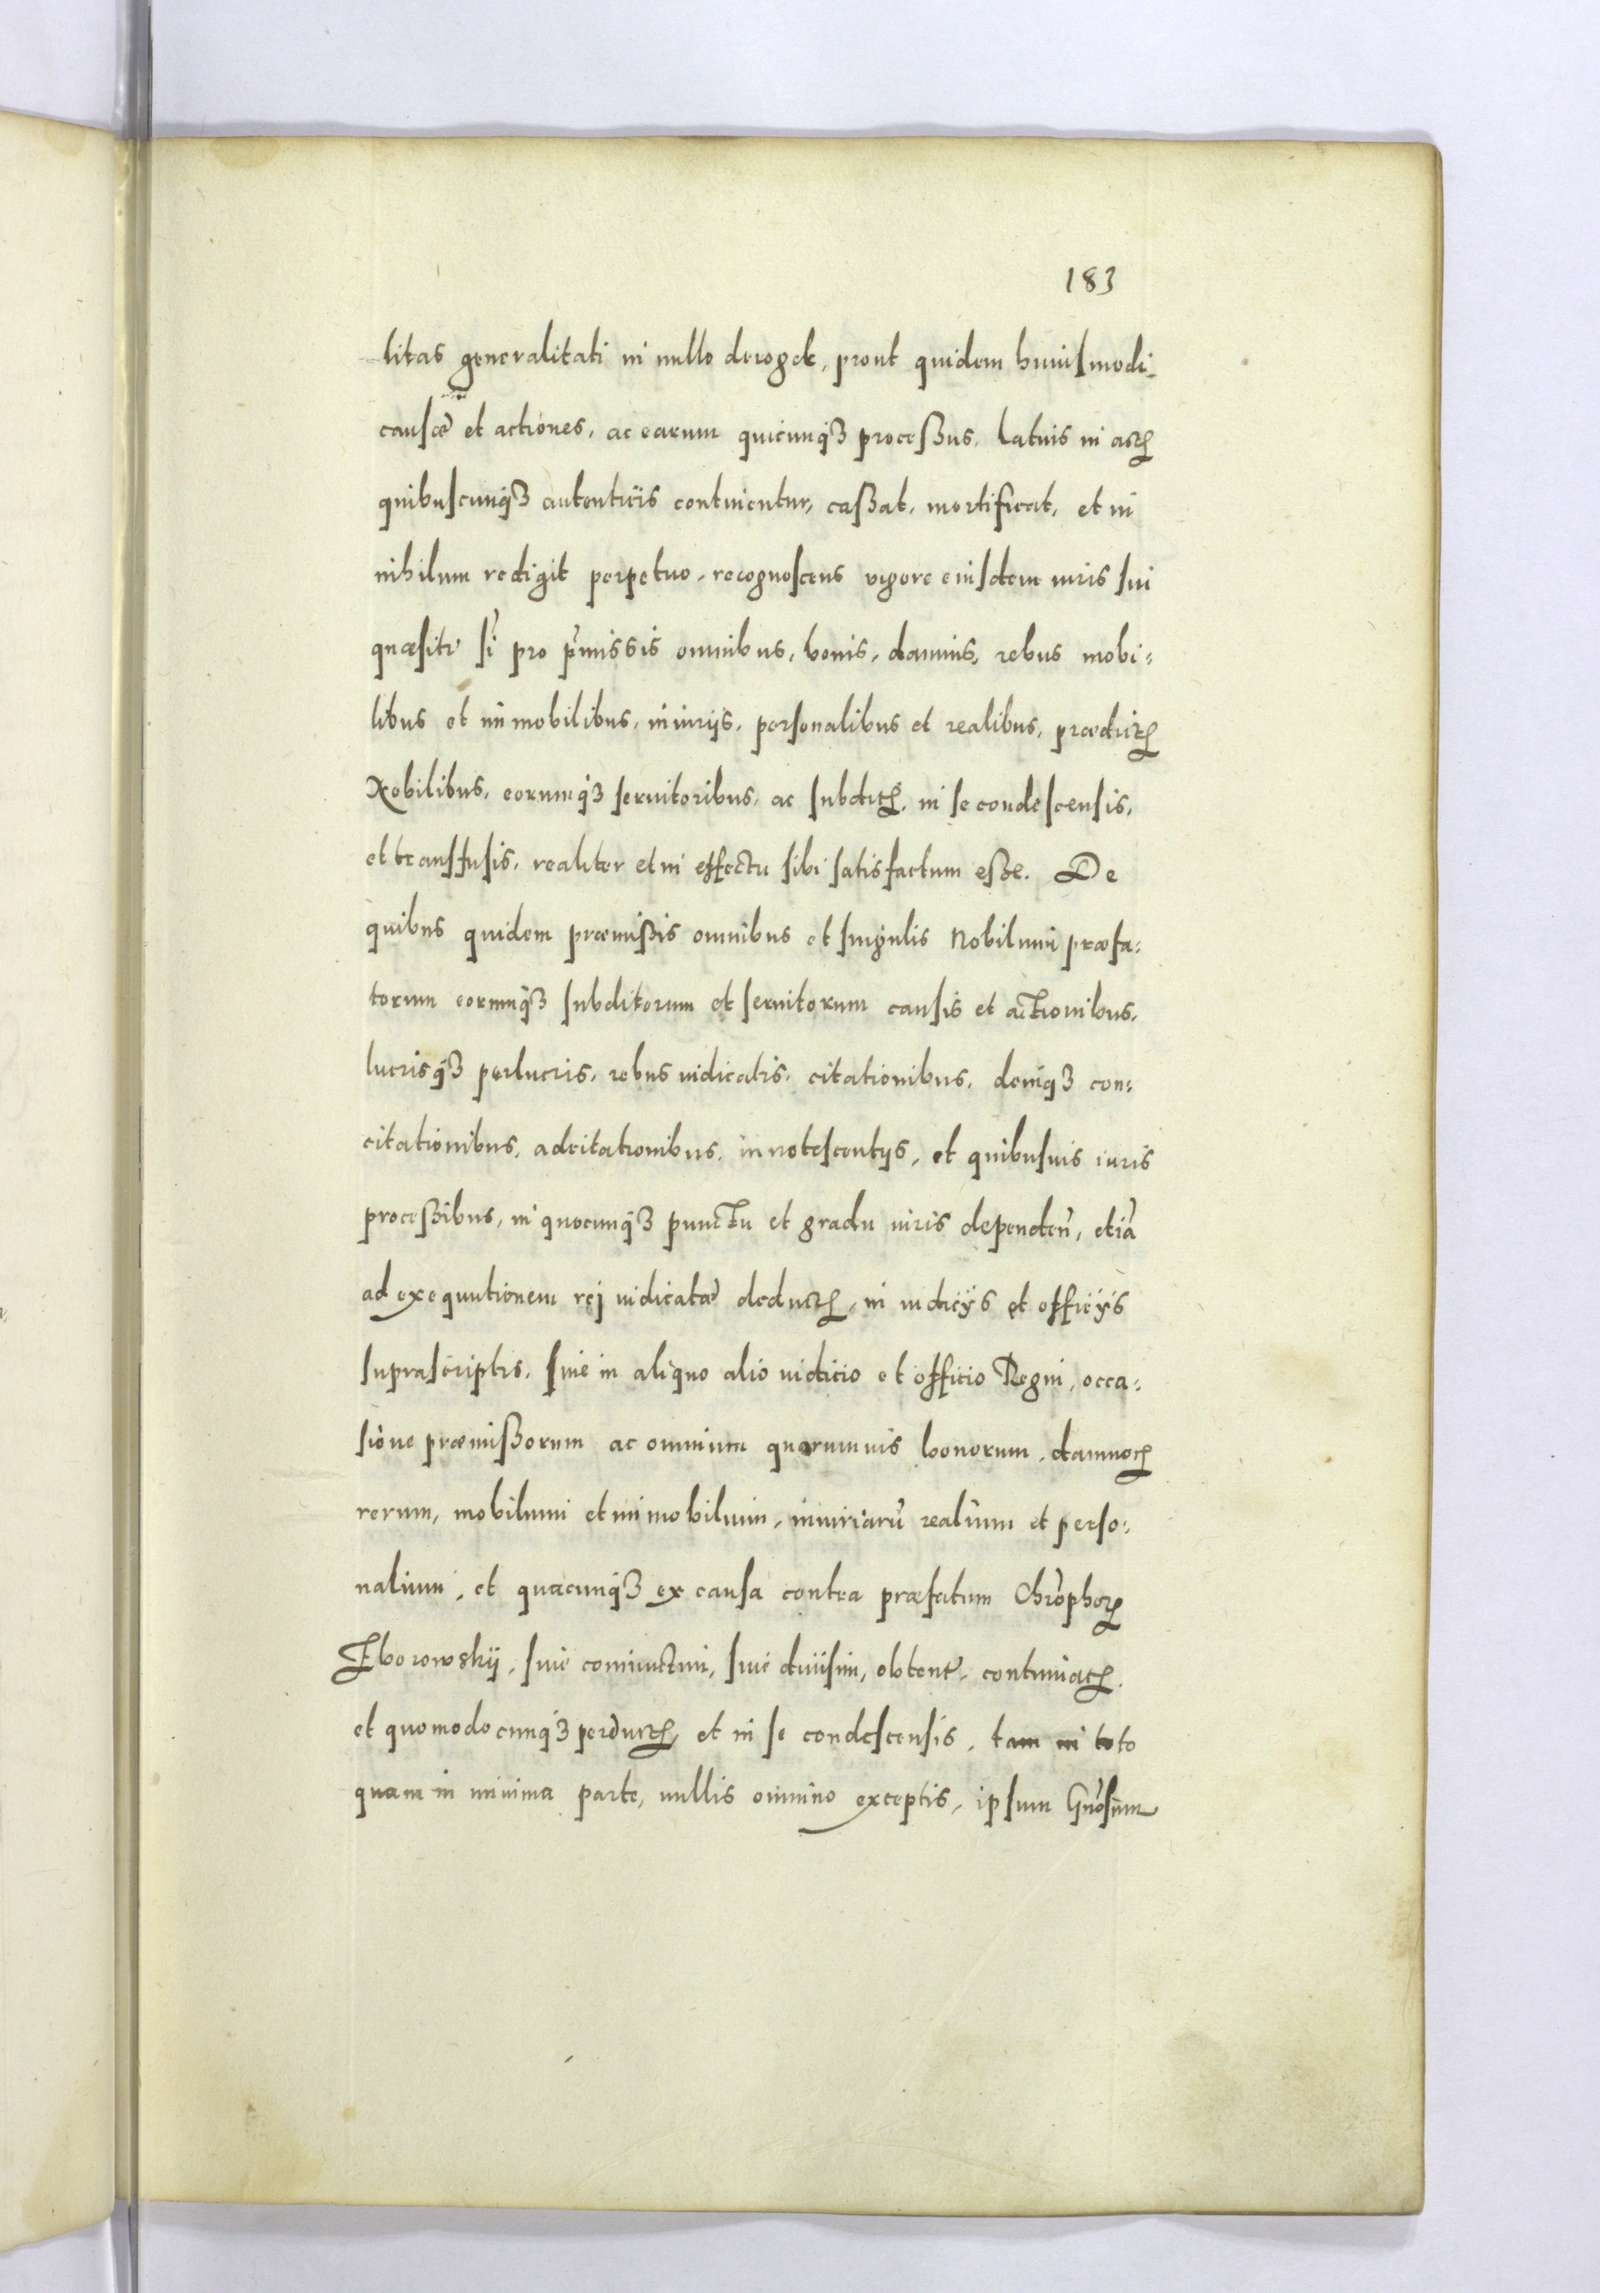 183
litas generalitati in nullo deroget, prout quidem huiusmodi
causæ et actiones, ac earum quicunqȝ proceßus, latius in actꝭ
quibuscunqȝ autenticis continentur, caßat, mortificat, et in
nihilum redigit perpetuo, recognoscens vigore eiusdem iuris sui
quæsiti si pro p̃missis omnibus, bonis, damnis, rebus mobi-
libus et immobilibus, iniurijs, personalibus et realibus, prædictꝭ
Nobilibus, eorumqȝ seruitoribus, ac subditꝭ, in se condescensis,
et transfusis, realiter et in effectu sibi satisfactum eße. De
quibus quidem præmißis omnibus et singulis Nobilium præfa-
torum eorumqȝ subditorum et seruitorum causis et actionibus,
lucrisqȝ perlucris, rebus iudicatis, citationibus, deniqȝ con-
citationibus, adcitationibus, innotescentijs, et quibusuis iuris
proceßibus, in quocunqȝ punctu et gradu iuris dependeñ, etiã
ad exequutionem rej iudicatæ deductꝭ, in iudicijs et officijs
suprascriptis, siue in aliquo alio iudicio et officio Regni, occa-
sione præmißorum ac omnium quorumuis bonorum, damnorꝭ
rerum, mobilium et immobilium, iniuriarũ realium et perso-
nalium, et quacunqȝ ex causa contra præfatum Chr̃ophorꝭ
Zborowskij, siue coniunctim, siue diuisim, obtent̃, continuatꝭ
et quomodocunqȝ perductꝭ, et in se condescensis, tam in toto
quam in minima parte, nullis omnino exceptis, ipsum Gñosum